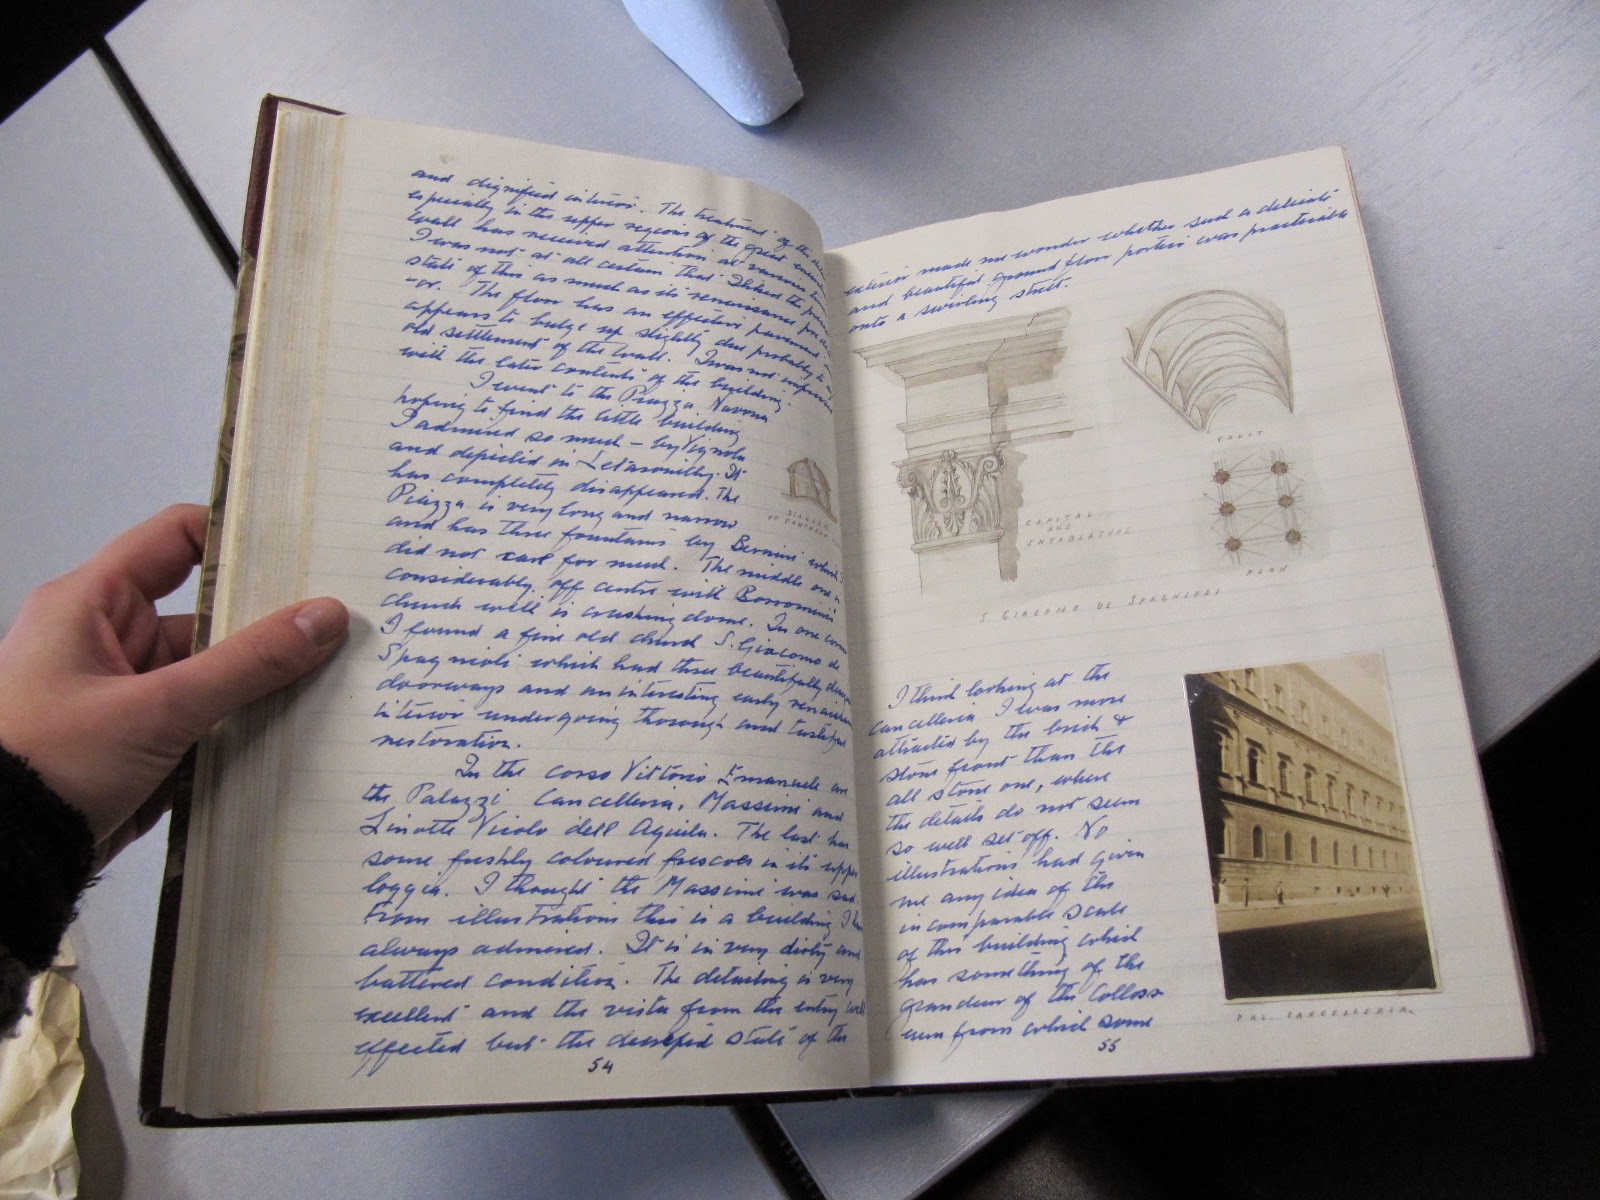 and dignified interior. The treatment of the
especially in the upper regions of the great
wall has received attention at various
I was not at all certain that I liked the present
state of this as much as its renaissance
The floor has an effective pavement
appears to bulge up slightly due probably to
old settlement of the wall. I was not impressed
with the later contents of the building.
I went to the Piazza Navona
hoping to find the little building
I admired so much - by Vignola
and depicted in Letarouilly. It
has completely disappeared. The
Piazza is very long and narrow
and has three fountains by Bernini which I
did not care for much. The middle one is
considerably off centre with Borromini's
church with its crushing dome. In one
I found a fine old church S. Giacomo de
Spagnioli which had three beautifully
doorways and an interesting early
interior undergoing thorough and tasteful
restoration.
In the corso Vittorio Emanuele are
the Palazzi Cancelleria, Massimi and
Linotte Vicolo dell Aquila. The last has
some freshly coloured frescoes in its upper
loggia. I thought the Massimi was sad.
From illustrations this is a building I
always admired. It is in very dirty and
battered condition. The detailing is very
excellent and the vista from the entry well
effected but the state of the
54
DIAGRAM
OF PANTHEON
exterior made me wonder whether such a delicate
and beautiful ground floor portico was practicable
onto a swirling street.
VAULT
CAPITAL
AND
ENTABLATURE
PLAN
S. GIACOMO DE SPAGNIOLI
I think looking at the
Cancelleria I was more
attracted by the brick &
stone front than the
all stone one, where
the details do not seem
so well set off. No
illustrations had given
me any idea of the
incomparable scale
of this building which
has something of the
grandeur of the Coloss
eum from which some
PAL. CANCELLERIA.
55